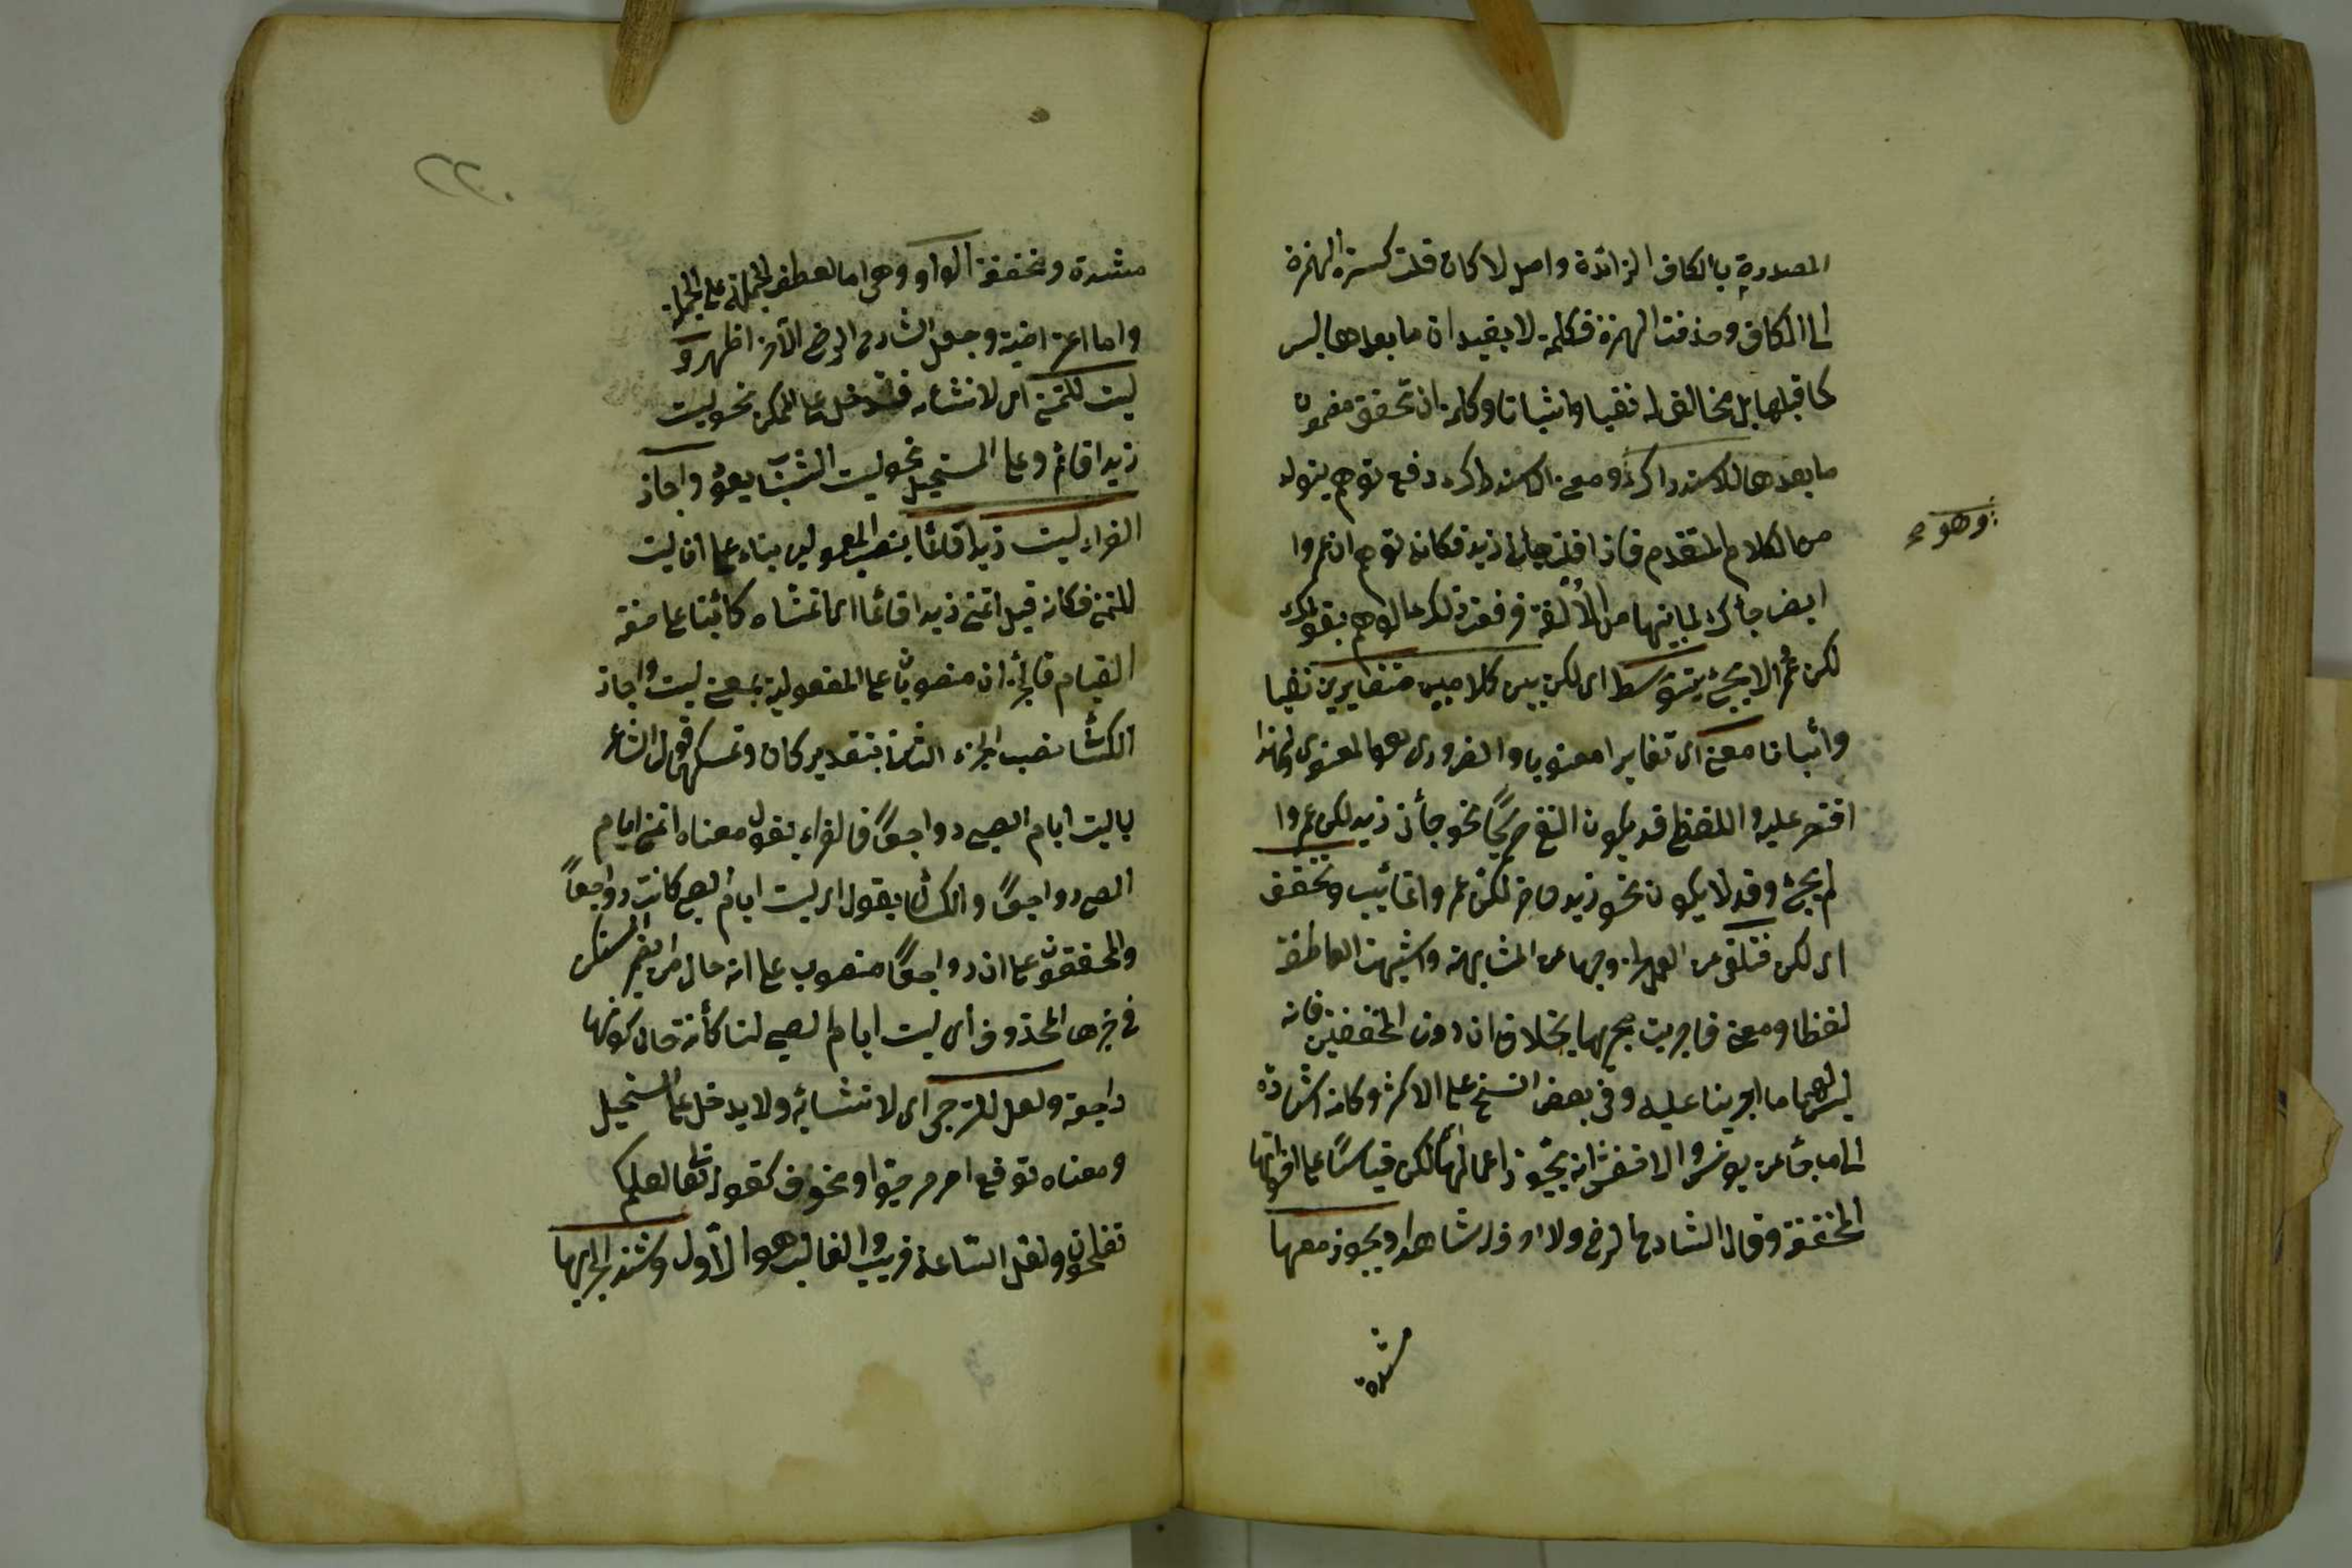 المصدرة بالكاف الزائدة واصل لاكان فنقلت كسرة الهمزة
الى الكاف وحذفت الهمزة فكلمة لا يفيد ان ما بعدها ليس
كما قبلها بل مخالف له نفيا واثباتا وكلمة ان تحقق مضمون
ما بعدها للاستدراك ومعنى الاستدراك دفع توهم يتولد
من الكلام المتقدم فاذا قلت جاءنى زيد فكانه توهم ان عمروا
ايضا جاءك لما بينهما من الألفة فرفعت ذلك الوهم بقولك
لكن عمرا لم يجئ يتوسط اى لكن بين كلامين متغايرين نفيا
واثباتا معنى اى تغايرا معنويا والضرورى هو المعنوى ولهذا
اقتصر عليه واللفظى قد يكون النفى صريحا نحو جاءنى زيد لكن عمروا
لم يجئ وقد لا يكون نحو زيد حاضر لكن عمروا غائب وتخفف
اى لكن فتلغى عن العمل لخروجها عن المشابهة واشبهت العاطفة
لفظا ومعنى فاجريت مجريها بخلاف ان وان المخففتين فانه
ليس لهما ما اجرينا عليه وفى بعض النسخ على الاكثر وكانه اشارة
الى ما جاء عن يونس والاخفش انه يجوز اعمالها لكن قياسا على اخواتها
المخففة وقال الشارح الرضى ولا اعرف له شاهدا ويجوز معها
وهو
مشددة
مشددة ومخففة الواو وهى اما لعطف الجملة على الجملة
واما اعتراضية وجعل الشارح الرضى الأخير اظهر و
ليت للتمنى اى لانشائه فتدخل على الممكن نحو ليت
زيدا قائم وعلى المستحيل نحو ليت الشباب يعود واجاز
الفراء ليت زيدا قائما بنصب المعمولين بناء على ان ليت
للتمنى فكانه قيل اتمنى زيدا قائما اى اتمناه كائنا على صفة
القيام فالجزءان منصوبان على المفعولية بمعنى ليت واجاز
الكسائى نصب الجزء الثانى بتقدير كان وتمسكهما قول الشاعر
يا ليت ايام الصبى رواجعا فالفراء يقول معناه اتمنى ايام
الصبى رواجعا والكسائى يقول اى ليت ايام الصبى كانت رواجعا
والمحققون على ان رواجعا منصوب على انه حال من الضمير المستكن
فى خبرها المحذوف أى ليت ايام الصبى لنا كائنة حال كونها
راجعة ولعل للترجى اى لانشائه ولا يدخل على المستحيل
ومعناه توقع امر مرجو او مخوف كقوله تعالى لعلكم
تفلحون ولعل الساعة قريب والغالب هو الأول وشذ الجر بها